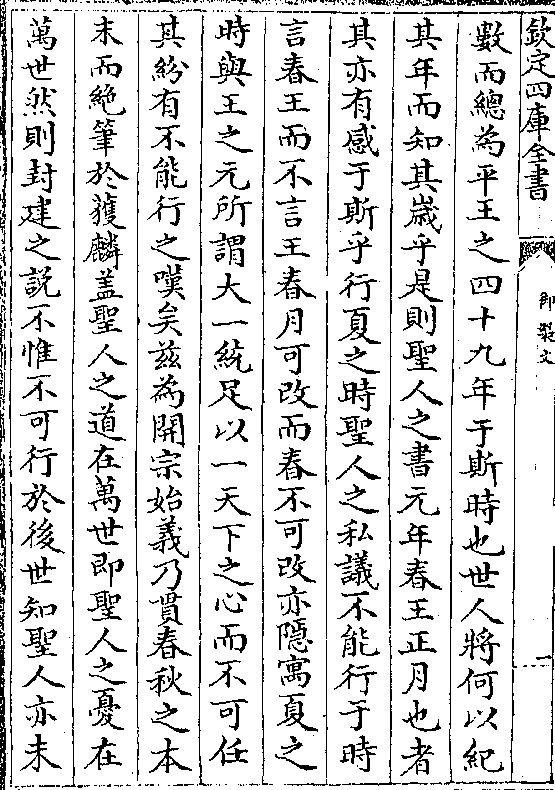 欽定四庫全書
御製文
一
數而總為平王之四十九年于斯時也世人將何以紀
其年而知其嵗乎是則聖人之書元年春王正月也者
其亦有感于斯乎行夏之時聖人之私議不能行于時
言春王而不言王春月可改而春不可改亦隱寓夏之
時與王之元所謂大一統足以一天下之心而不可任
其紛有不能行之嘆矣兹為開宗始義乃貫春秋之本
末而絶筆於獲麟盖聖人之道在萬世即聖人之憂在
萬世然則封建之説不惟不可行於後世知聖人亦未